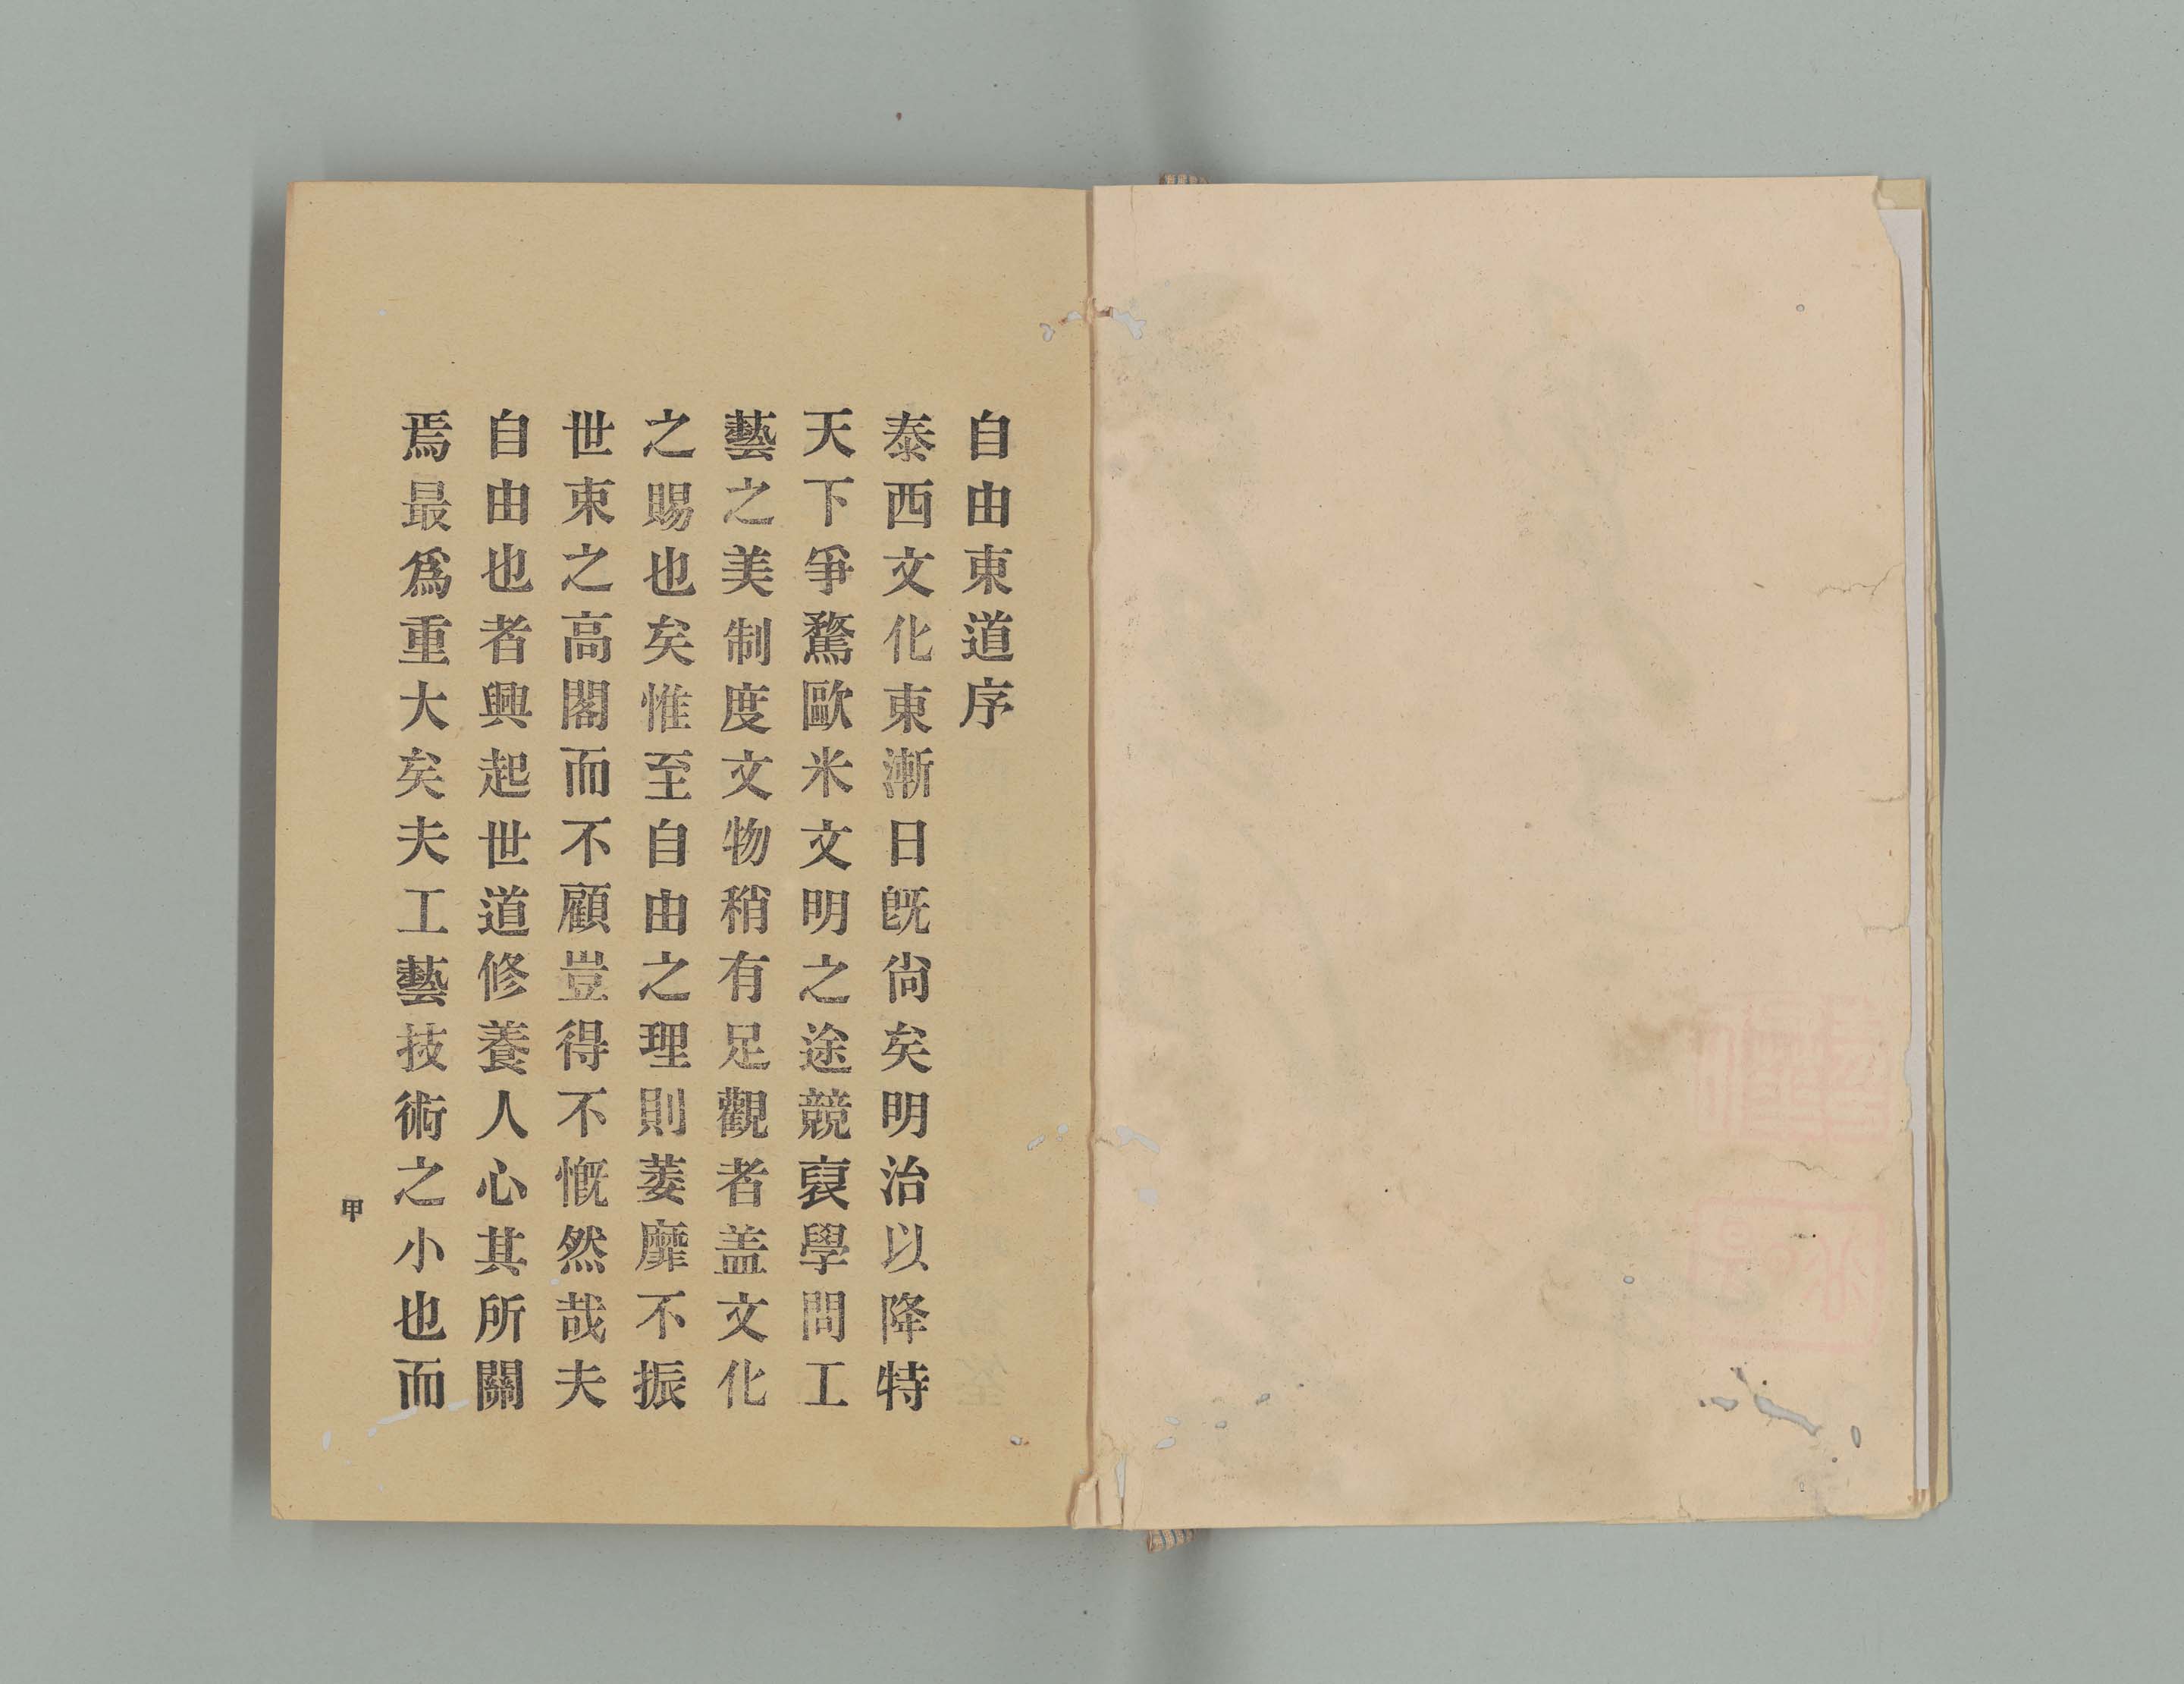 自由東道序
泰西文化東漸日旣尙矣明治以降特
天下爭騖歐米文明之途競裒學問工
藝之美制度文物稍有足觀者盖文化
之賜也矣惟至自由之理則萎靡不振
世束之高閣而不顧豈得不慨然哉夫
自由也者興起世道修養人心其所關
焉最爲重大矣夫工藝技術之小也而
甲